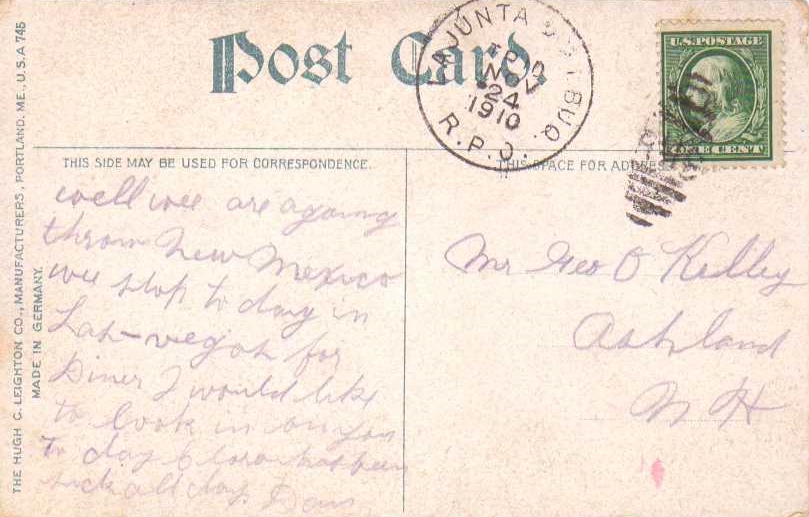 Post Card.
LA JUNTA & ALBUQ.
NOV
24
1910
R.P.O.
U.S. POSTAGE
ONE CENT
THIS SIDE MAY BE USED FOR CORRESPONDENCE.
THIS SPACE FOR ADDRESS
THE HUGH C. LEIGHTON CO., MANUFACTURERS, PORTLAND, ME., U.S.A 745
MADE IN GERMANY.
well wee are agoing
throw New Mexico
wee stop to day in
Las-vegos for
Diner I would like
to look in on you
to day Clara has been
sick all day
Mr Geo O Kelley
Ashland
N H